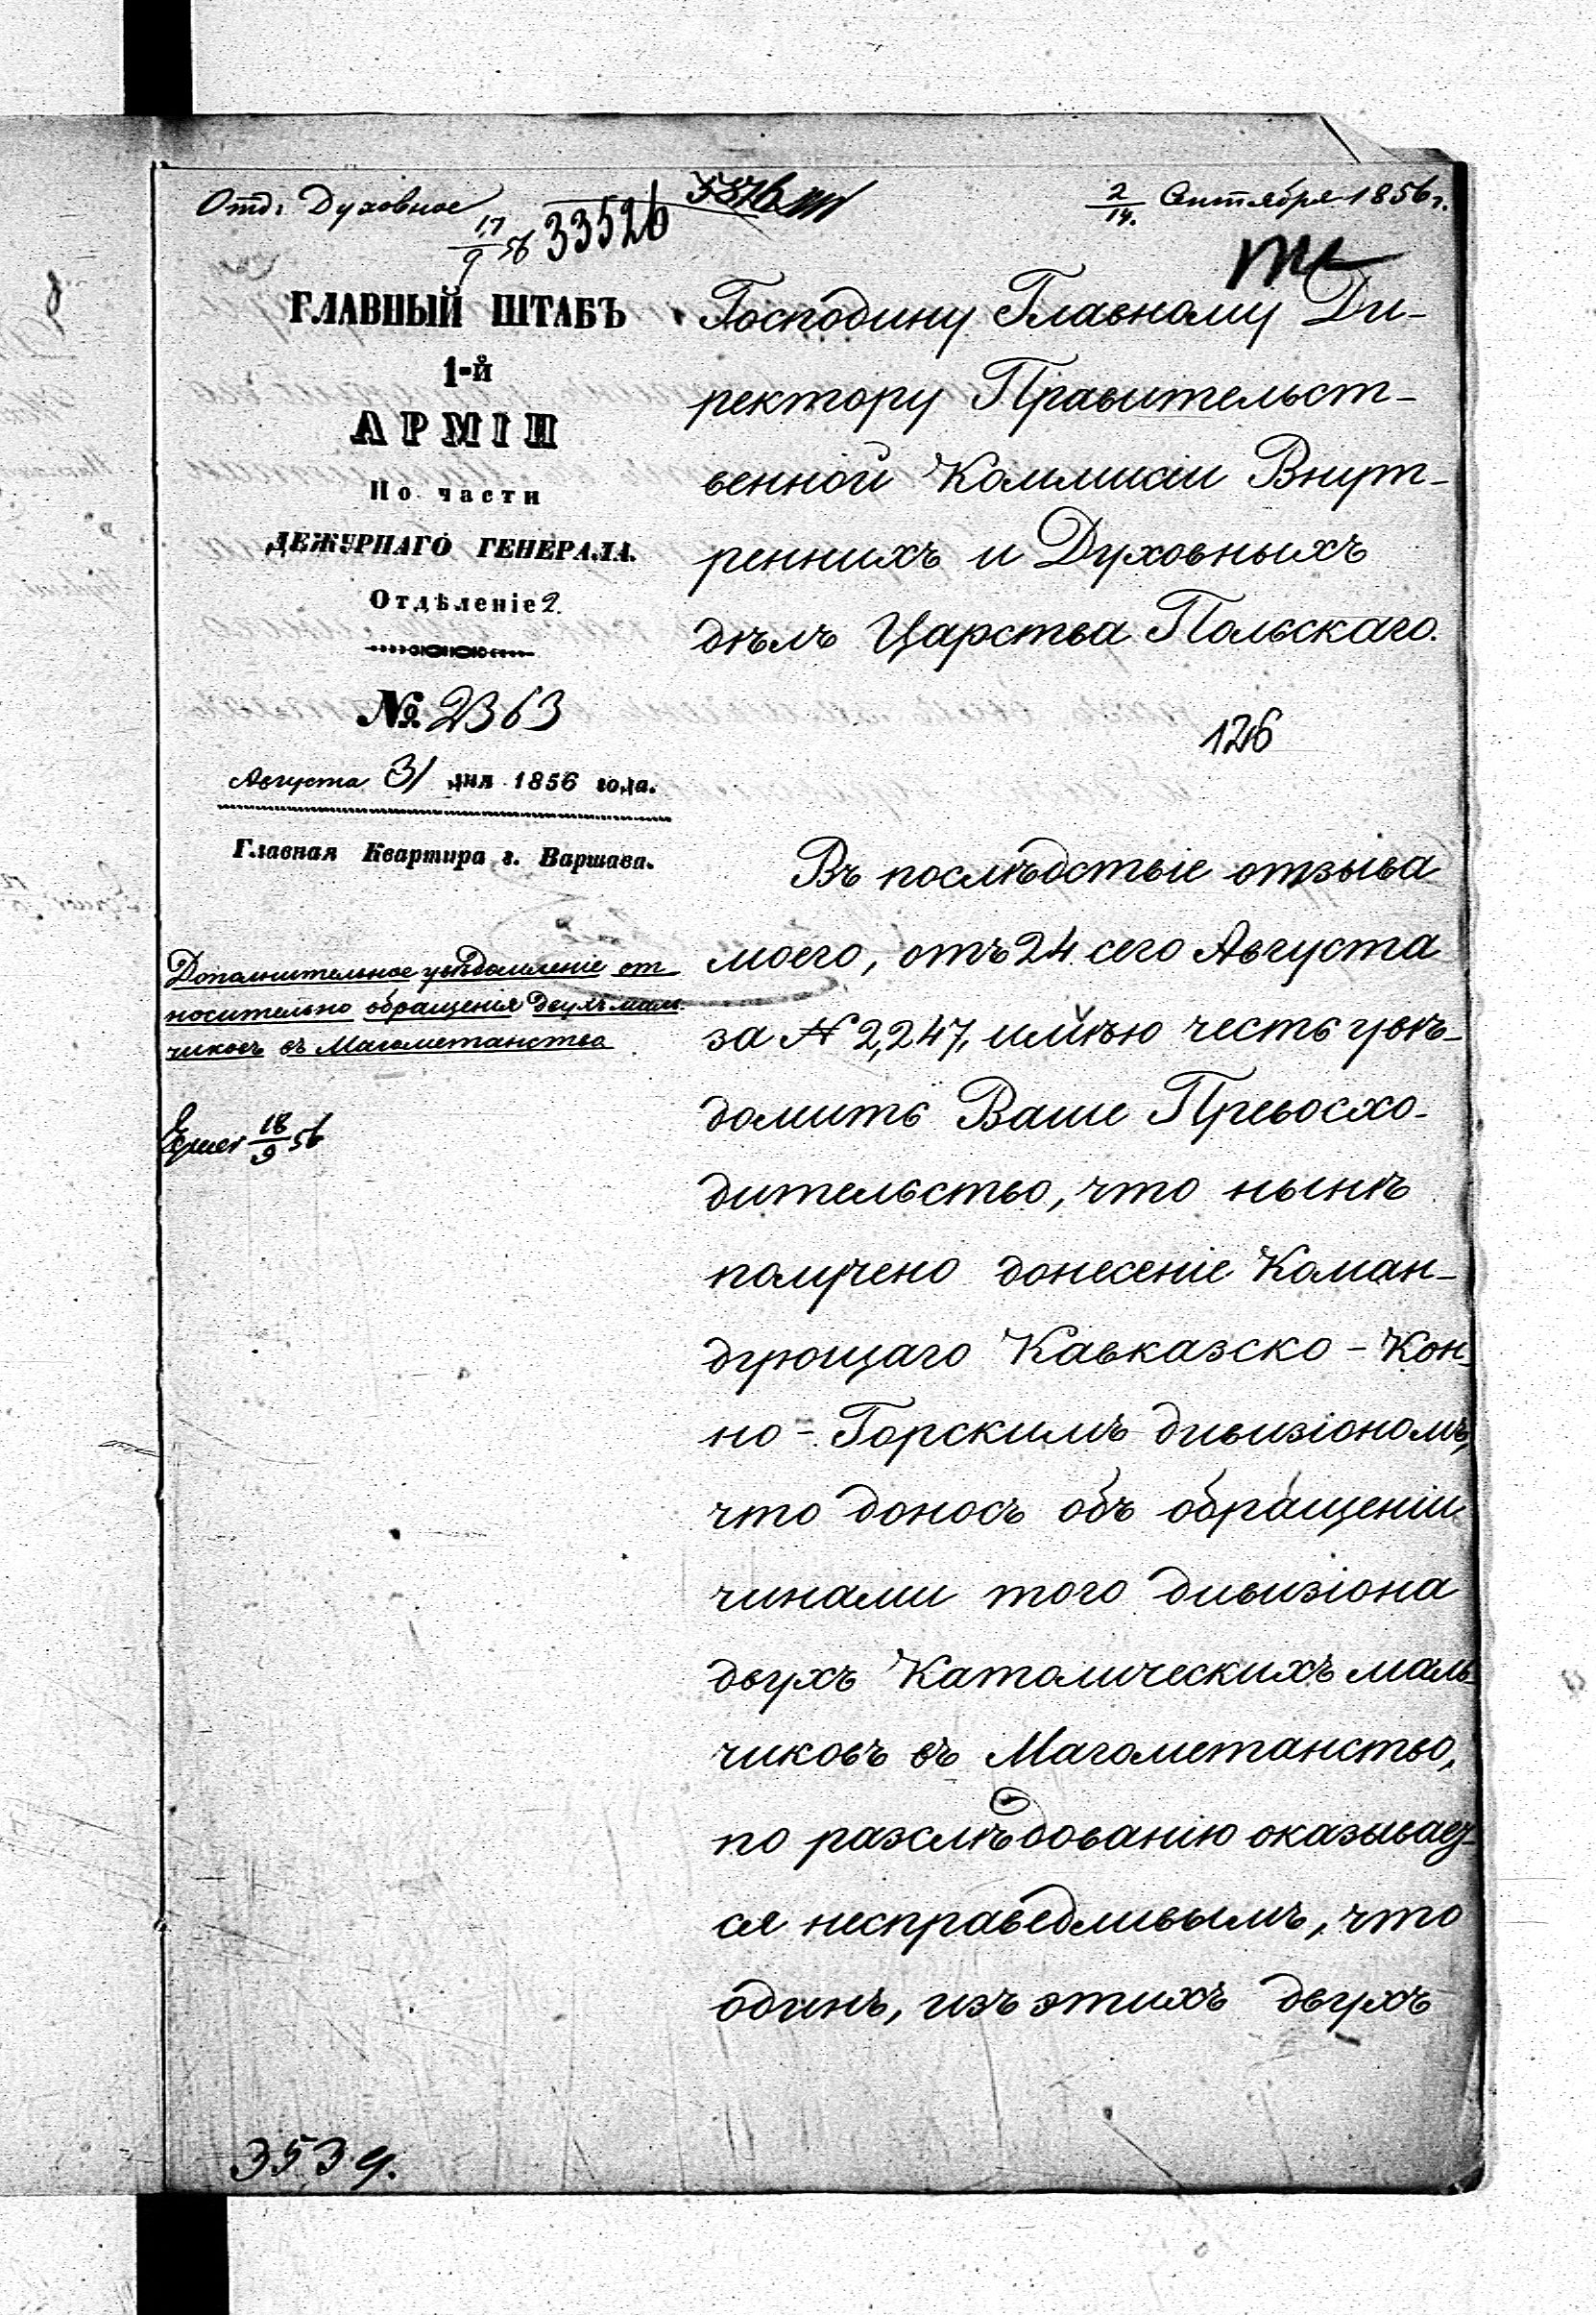 Отд: Духовное
17/9 56 33526
2/14. Сентября 1856 г.
ГЛАВНЫЙ ШТАБЪ
1-й
АРМІИ
По части
ДЕЖУРНАГО ГЕНЕРАЛА.
Отдѣленіе 2.
№ 2363
Августа 31 дня 1856 года.
Главная Квартира г. Варшава.
Дополнительное увѣдомленіе от
носительно обращенія двухъ маль
чиковъ въ Магометанство
18/9 56
Господину Главному Ди-
ректору Правительст-
венной Коммисіи Внут-
реннихъ и Духовныхъ
дѣлъ Царства Польскаго.
126
Въ послѣдствіе отзыва
моего, отъ 24 сего Августа
за № 2,247, имѣю честь увѣ-
домить Ваше Превосхо-
дительство, что нынѣ
получено донесеніе Коман-
дующаго Кавказско-Кон-
но-Горскимъ дивизіономъ,
что доносъ объ обращеніи
чинами того дивизіона
двухъ Католическихъ маль-
чиковъ въ Магометанство,
по разслѣдованію оказывает-
ся несправедливымъ, что
одинъ, изъ этихъ двухъ
353 д.